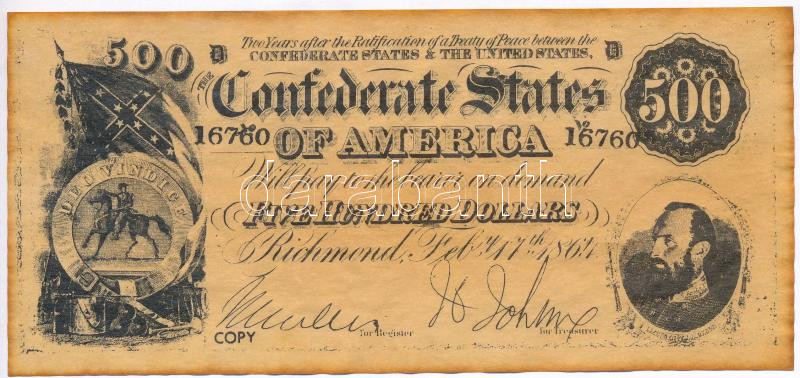 500 D Two Years after the Ratification of a Treaty of Peace between the D
CONFEDERATE STATES & THE UNITED STATES,
THE
Confederate States
500
16760 OF AMERICA 16760
Will pay to the bearer on demand
DEO VINDICE
FIVE HUNDRED DOLLARS
Richmond, Feby. 17th 1864
darabanth
for Register
for Treasurer
COPY